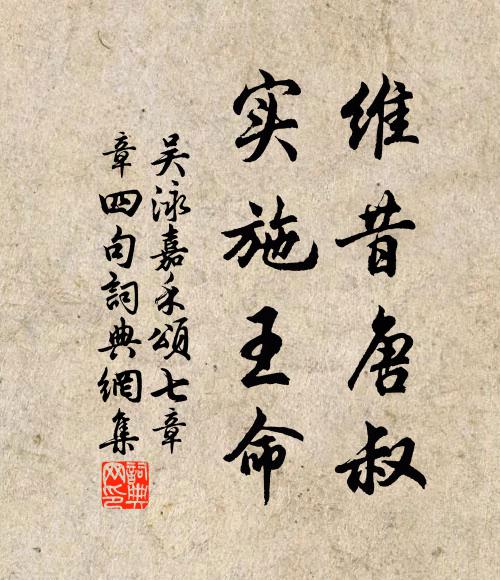 维昔唐叔
实施王命
吴泳嘉禾頌七章
章四句詞典網集
詞典網印